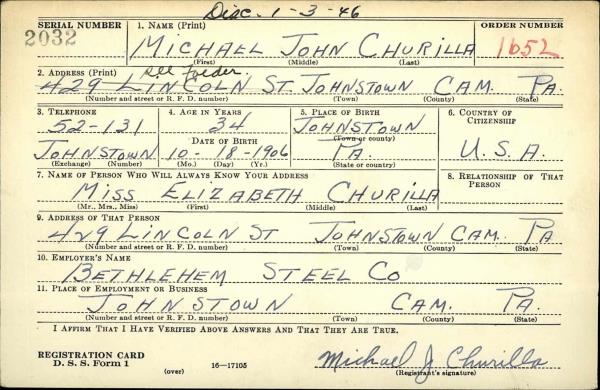 Disc. 1-3-46
SERIAL NUMBER 1. NAME (Print) ORDER NUMBER
2032 MICHAEL JOHN CHURILLA 1652
(First) (Middle) (Last)
2. ADDRESS (Print) See folder
429 LINCOLN ST. JOHNSTOWN CAM. PA.
(Number and street or R. F. D. number) (Town) (County) (State)
3. TELEPHONE 4. AGE IN YEARS 5. PLACE OF BIRTH 6. COUNTRY OF CITIZENSHIP
52-131 34 JOHNSTOWN
DATE OF BIRTH (Town or county)
JOHNSTOWN 10-18-1906 PA. U.S.A.
(Exchange) (Number) (Mo.) (Day) (Yr.) (State or country)
7. NAME OF PERSON WHO WILL ALWAYS KNOW YOUR ADDRESS 8. RELATIONSHIP OF THAT PERSON
MISS ELIZABETH CHURILLA
(Mr., Mrs., Miss) (First) (Middle) (Last)
9. ADDRESS OF THAT PERSON
429 LINCOLN ST JOHNSTOWN CAM. PA
(Number and street or R. F. D. number) (Town) (County) (State)
10. EMPLOYER'S NAME
BETHLEHEM STEEL CO
11. PLACE OF EMPLOYMENT OR BUSINESS
JOHNSTOWN CAM. PA.
(Number and street or R. F. D. number) (Town) (County) (State)
I AFFIRM THAT I HAVE VERIFIED ABOVE ANSWERS AND THAT THEY ARE TRUE.
REGISTRATION CARD
D. S. S. Form 1 16—17105 Michael J Churilla
(over) (Registrant's signature)